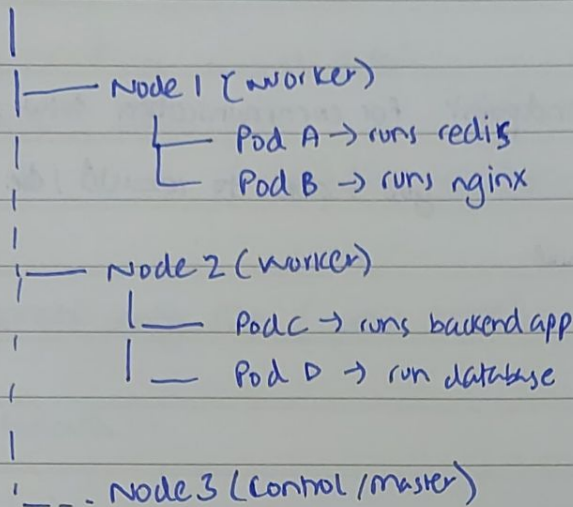 Node 1 (worker)
Pod A → runs redis
Pod B → runs nginx
Node 2 (worker)
Pod C → runs backend app
Pod D → run database
Node 3 (control / master)